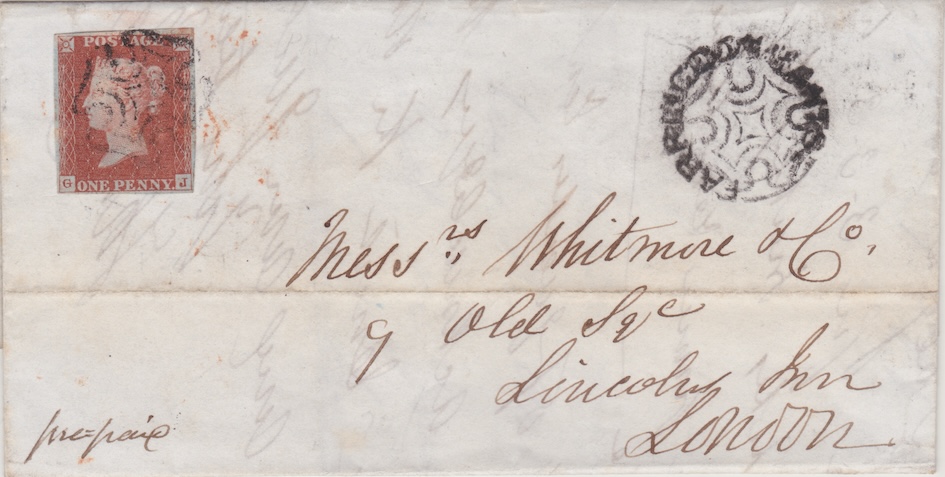 POSTAGE
G ONE PENNY J
FARRINGDON
Mess.rs Whitmore & Co.
9 Old Sqe
Lincolns Inn
London
pre-paid